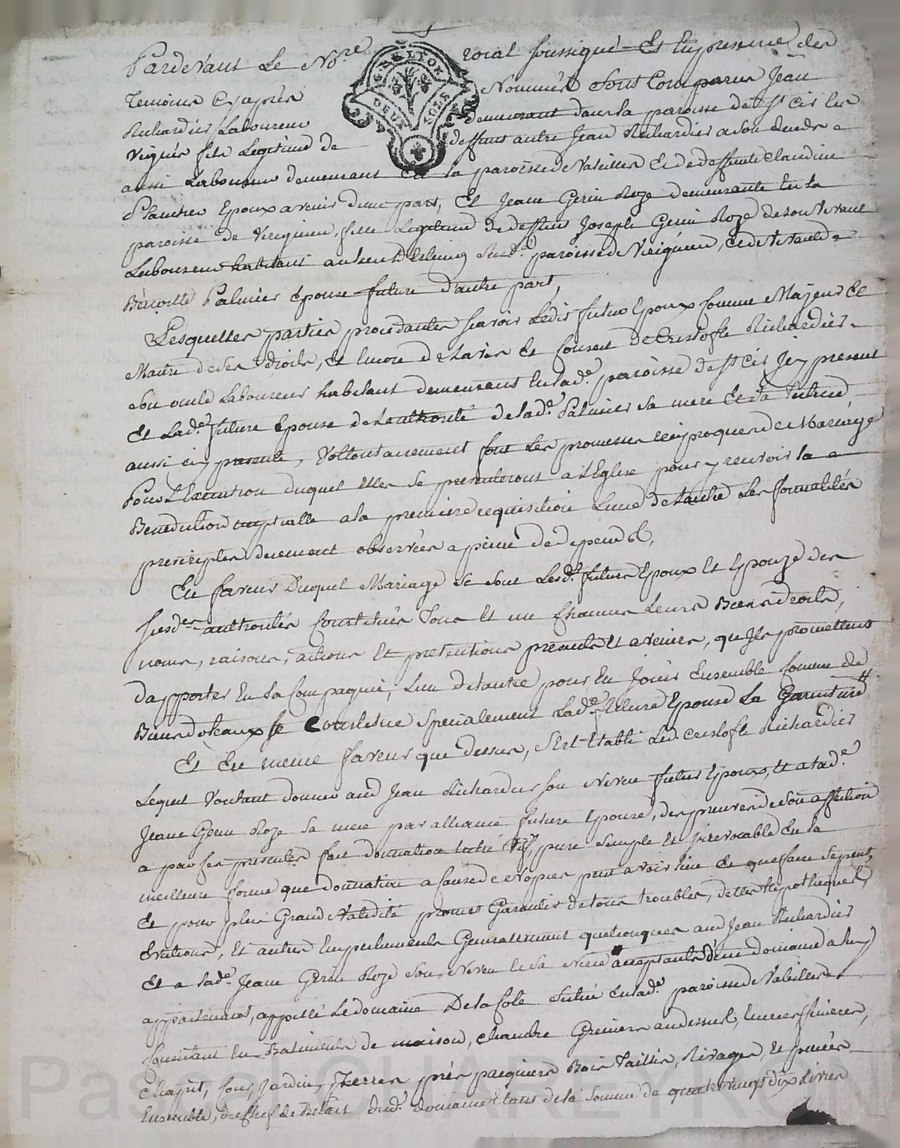 Pardevant Le Nore roial soussigné Et En presence des
Temoins Cyaprés Nommés Sont Comparus Jean
Richardier Laboureur demeurant dans la paroisse de St cir les
Vignes fils Legitime de deffunt autre Jean Richardier
aussi Laboureur demeurant En la paroisse de Valeilles Et de deffunte Claudine
Epoux avenir d'une part, Et Jeane Gerin Roze demeurante En la
paroisse de Virigneu, fille Legitime de deffunt Joseph Gerin Roze de son vivant
Laboureur habitant au lieu paroisse de Virigneux, Et de vivante
Benoitte Palmier Epouse future d'autre part,
Lesquelles parties procedantes scavoir Ledit futur Epoux comme Majeur Et
Maitre de ses Droits, Et Encore de Lavis Et Consent de Cristofle Richardier
son oncle Laboureur habitant demeurant En lade. paroisse de St cir Jcy present
Et Lade. future Epouse de Lauthorité de lade. Palmier sa mere Et sa Tutrice
aussi icy presente, Vollontairement font Les promesses reciproques de Mariage
Pour L'Execution duquel Elles se presenteront a L'Eglise pour y recevoir la
Benediction nuptialle a la premiere requisition Lune de Lautre Les formalités
prescriptes duement observées a peine de depens &,
En faveur Duquel Mariage se sont Lesds. futurs Epoux Et Epouze des
susdes. authorités Constitués Tous Et un chacuns Leurs Biens droits,
noms, raisons, actions Et pretentions presents Et avenirs, quJls promettent
dapporter En La Compagnie, Lun de Lautre pour En Jouir Ensemble Comme de
Biens dotaux se Constitue Specialement Lade. future Epouse La Garniture
Et En meme faveur que dessus, s'Est Etabli Led. Cristofle Richardier
Lequel Voulant donner aud Jean Richardier son Neveu futur Epoux, Et a lade.
Jeane Gerin Roze sa niece par alliance future Epouse, des preuves de son affection
a par ses presentes fait donnation Entre vifs, pure simple Et irrevocable En la
meilleure forme que donnation a Cause de Nopces peut avoir lieu Et que faire se peut,
Et pour plus Grande Validité promet Garantir de tous troubles, dettes hypotheques,
Evictions, Et autres Empechements Generallement quelconques aud Jean Richardier
Et a lade. Jeane Gerin Roze son Neveu Et sa Niece acceptants d'un domaine a luy
appartenant, appellé Le domaine De la Cole Scitué En lade. paroisse de Valeilles
Consistant En Batiments de maison, chambre Greniers au dessus, Ecurie,
chapit, four, Jardin, Terres prés paquiers Bois Taillis, Rivages, Et
Ensemble, dud. domaine Etant de la Somme de quatre vingt dix Livres
GNE LYON
DEUX SOLS
Pascal CHAREYRON